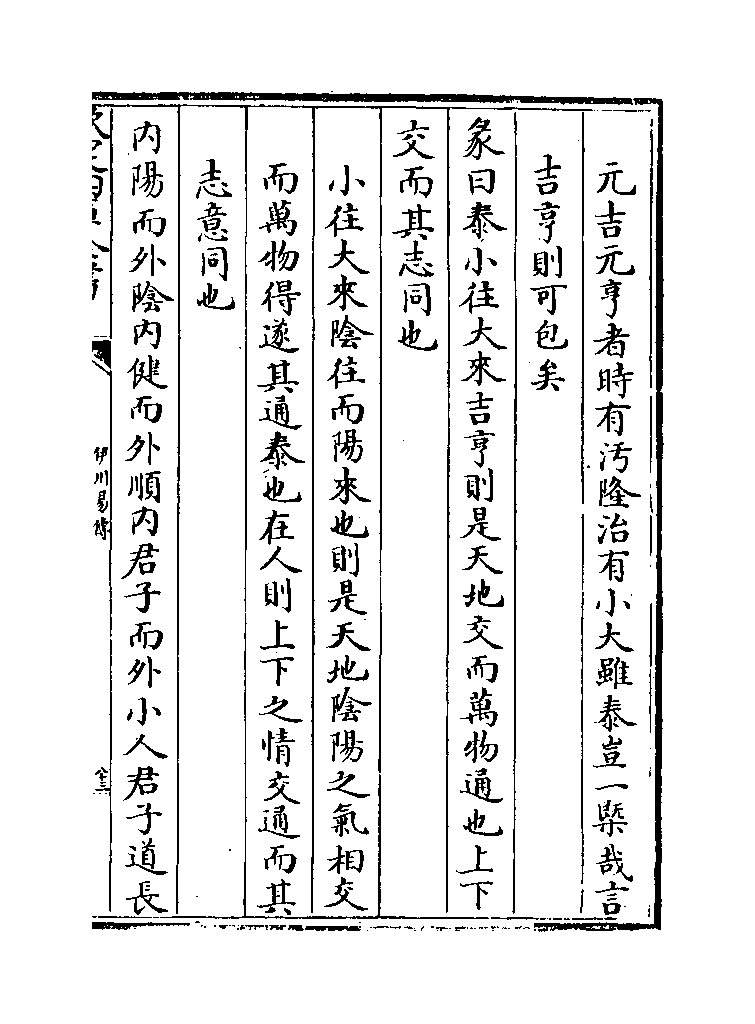 元吉元亨者時有汚隆治有小大雖泰豈一槩哉言
吉亨則可包矣
彖曰泰小往大來吉亨則是天地交而萬物通也上下
交而其志同也
小往大來陰往而陽來也則是天地陰陽之氣相交
而萬物得遂其通泰也在人則上下之情交通而其
志意同也
内陽而外陰内健而外順内君子而外小人君子道長
伊川易傳